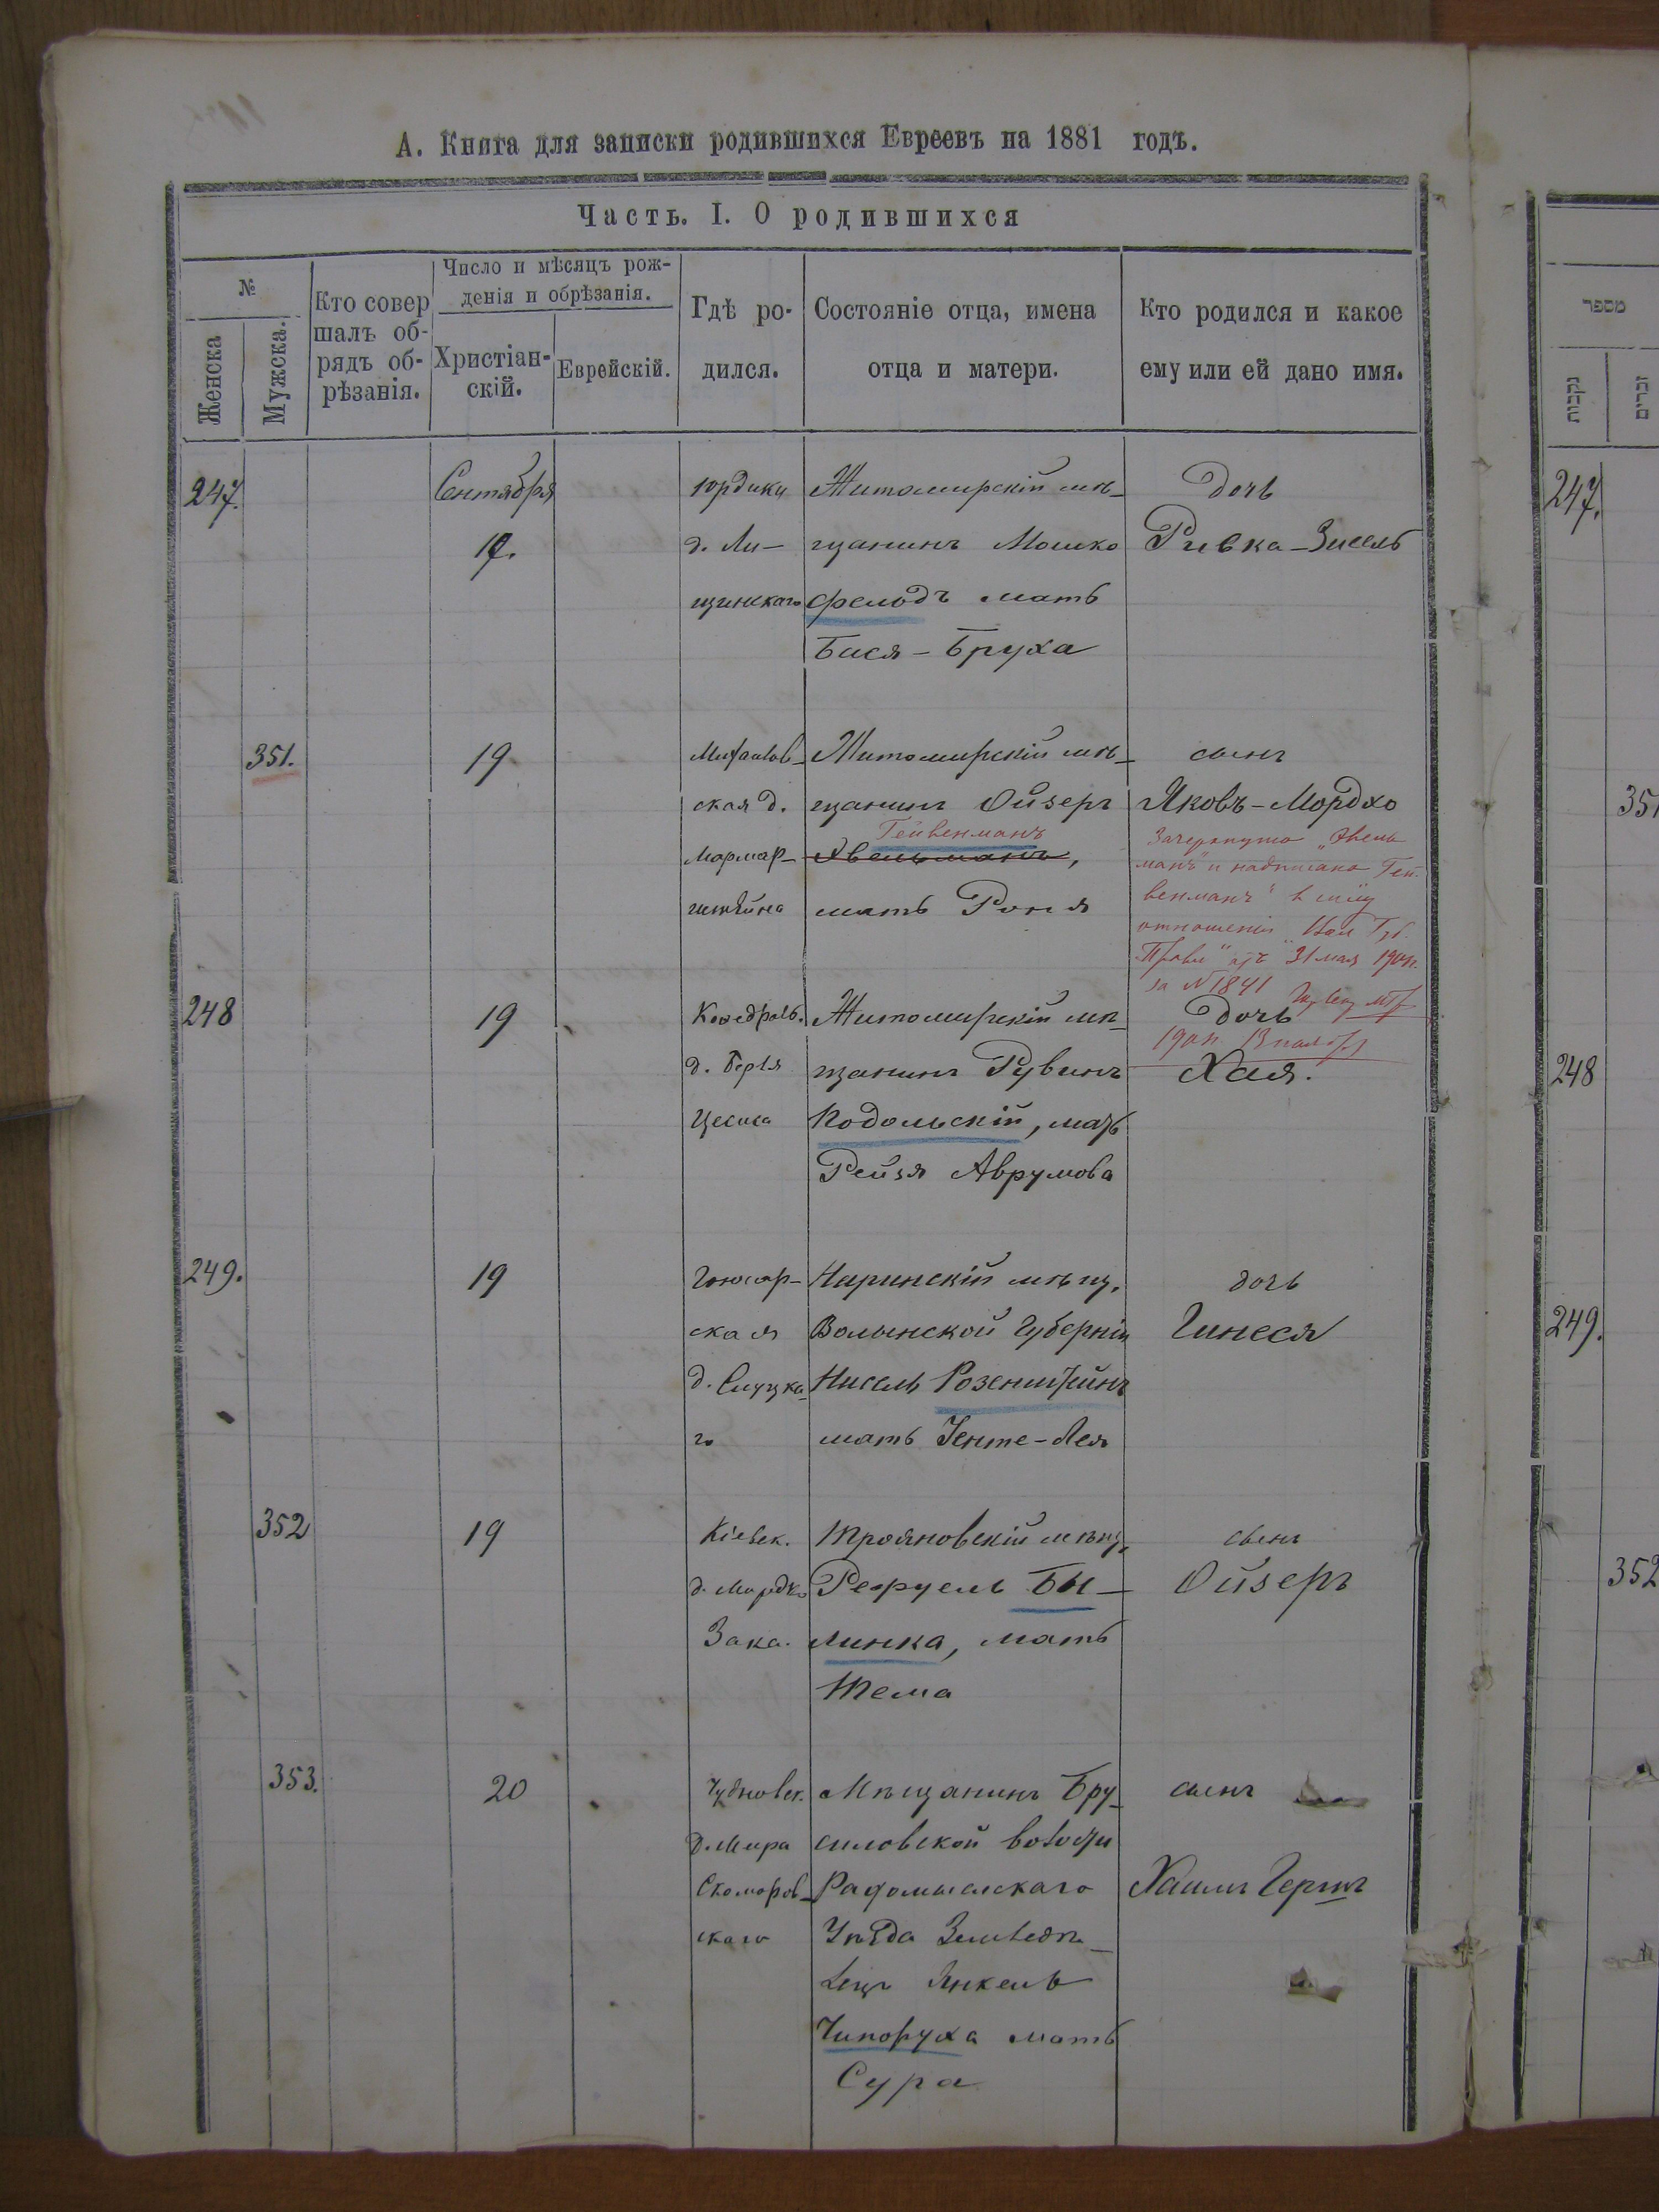 А. Книга для записки родившихся Евреевъ на 1881 годъ.
Часть. I. О родившихся
№
Женска
Мужска.
Кто совер
шалъ об-
рядъ об-
рѣзанія.
Число и мѣсяцъ рож-
денія и обрѣзанія.
Христіан-
скій.
Еврейскій.
Гдѣ ро-
дился.
Состояніе отца, имена
отца и матери.
Кто родился и какое
ему или ей дано имя.
מספר
נקבות
זכרים
247.
Сентября
д. Ли-
щинскаго
Житомирскій мѣ-
щанинъ Мошко
мать
Бася-Бруха
Дочь
Ривка-Зисель
247.
351.
19
Михайлов-
ская д.
штейна
Житомирскій мѣ-
щанинъ Ойзеръ
Гейвенманъ
мать Роня
сынъ
Яковъ-Мордхо
Зачеркнуто
манъ" и надписано Гей-
венманъ" в силу
отношенія Вол Губ.
Правл" отъ 31 мая
за №1841
351
248
19
д. Берка
Житомирскій мѣ-
щанинъ Рувинъ
Подольскій, мать
Рейзя Аврумова
Дочь
Хая.
248
249.
19
ская
д. Слуцка-
го
Наринскій мѣщ.
Волынской Губерніи
Нисель Розенштейнъ
мать Уенте-Лея
дочь
Гинеся
249.
352
19
Кіевск.
д. Мордко
Зака.
Трояновскій мѣщ.
Рефуель Бы-
линка, мать
Тема
сынъ
Ойзеръ
352
353.
20
Чудновск.
д. Мира
Скоморов-
скаго
Мѣщанинъ Бру-
силовской волости
Радомысльскаго
Уѣзда Землѣдѣ-
лецъ Янкель
Чипоруха мать
Сура
сынъ
Хаимъ Гершъ